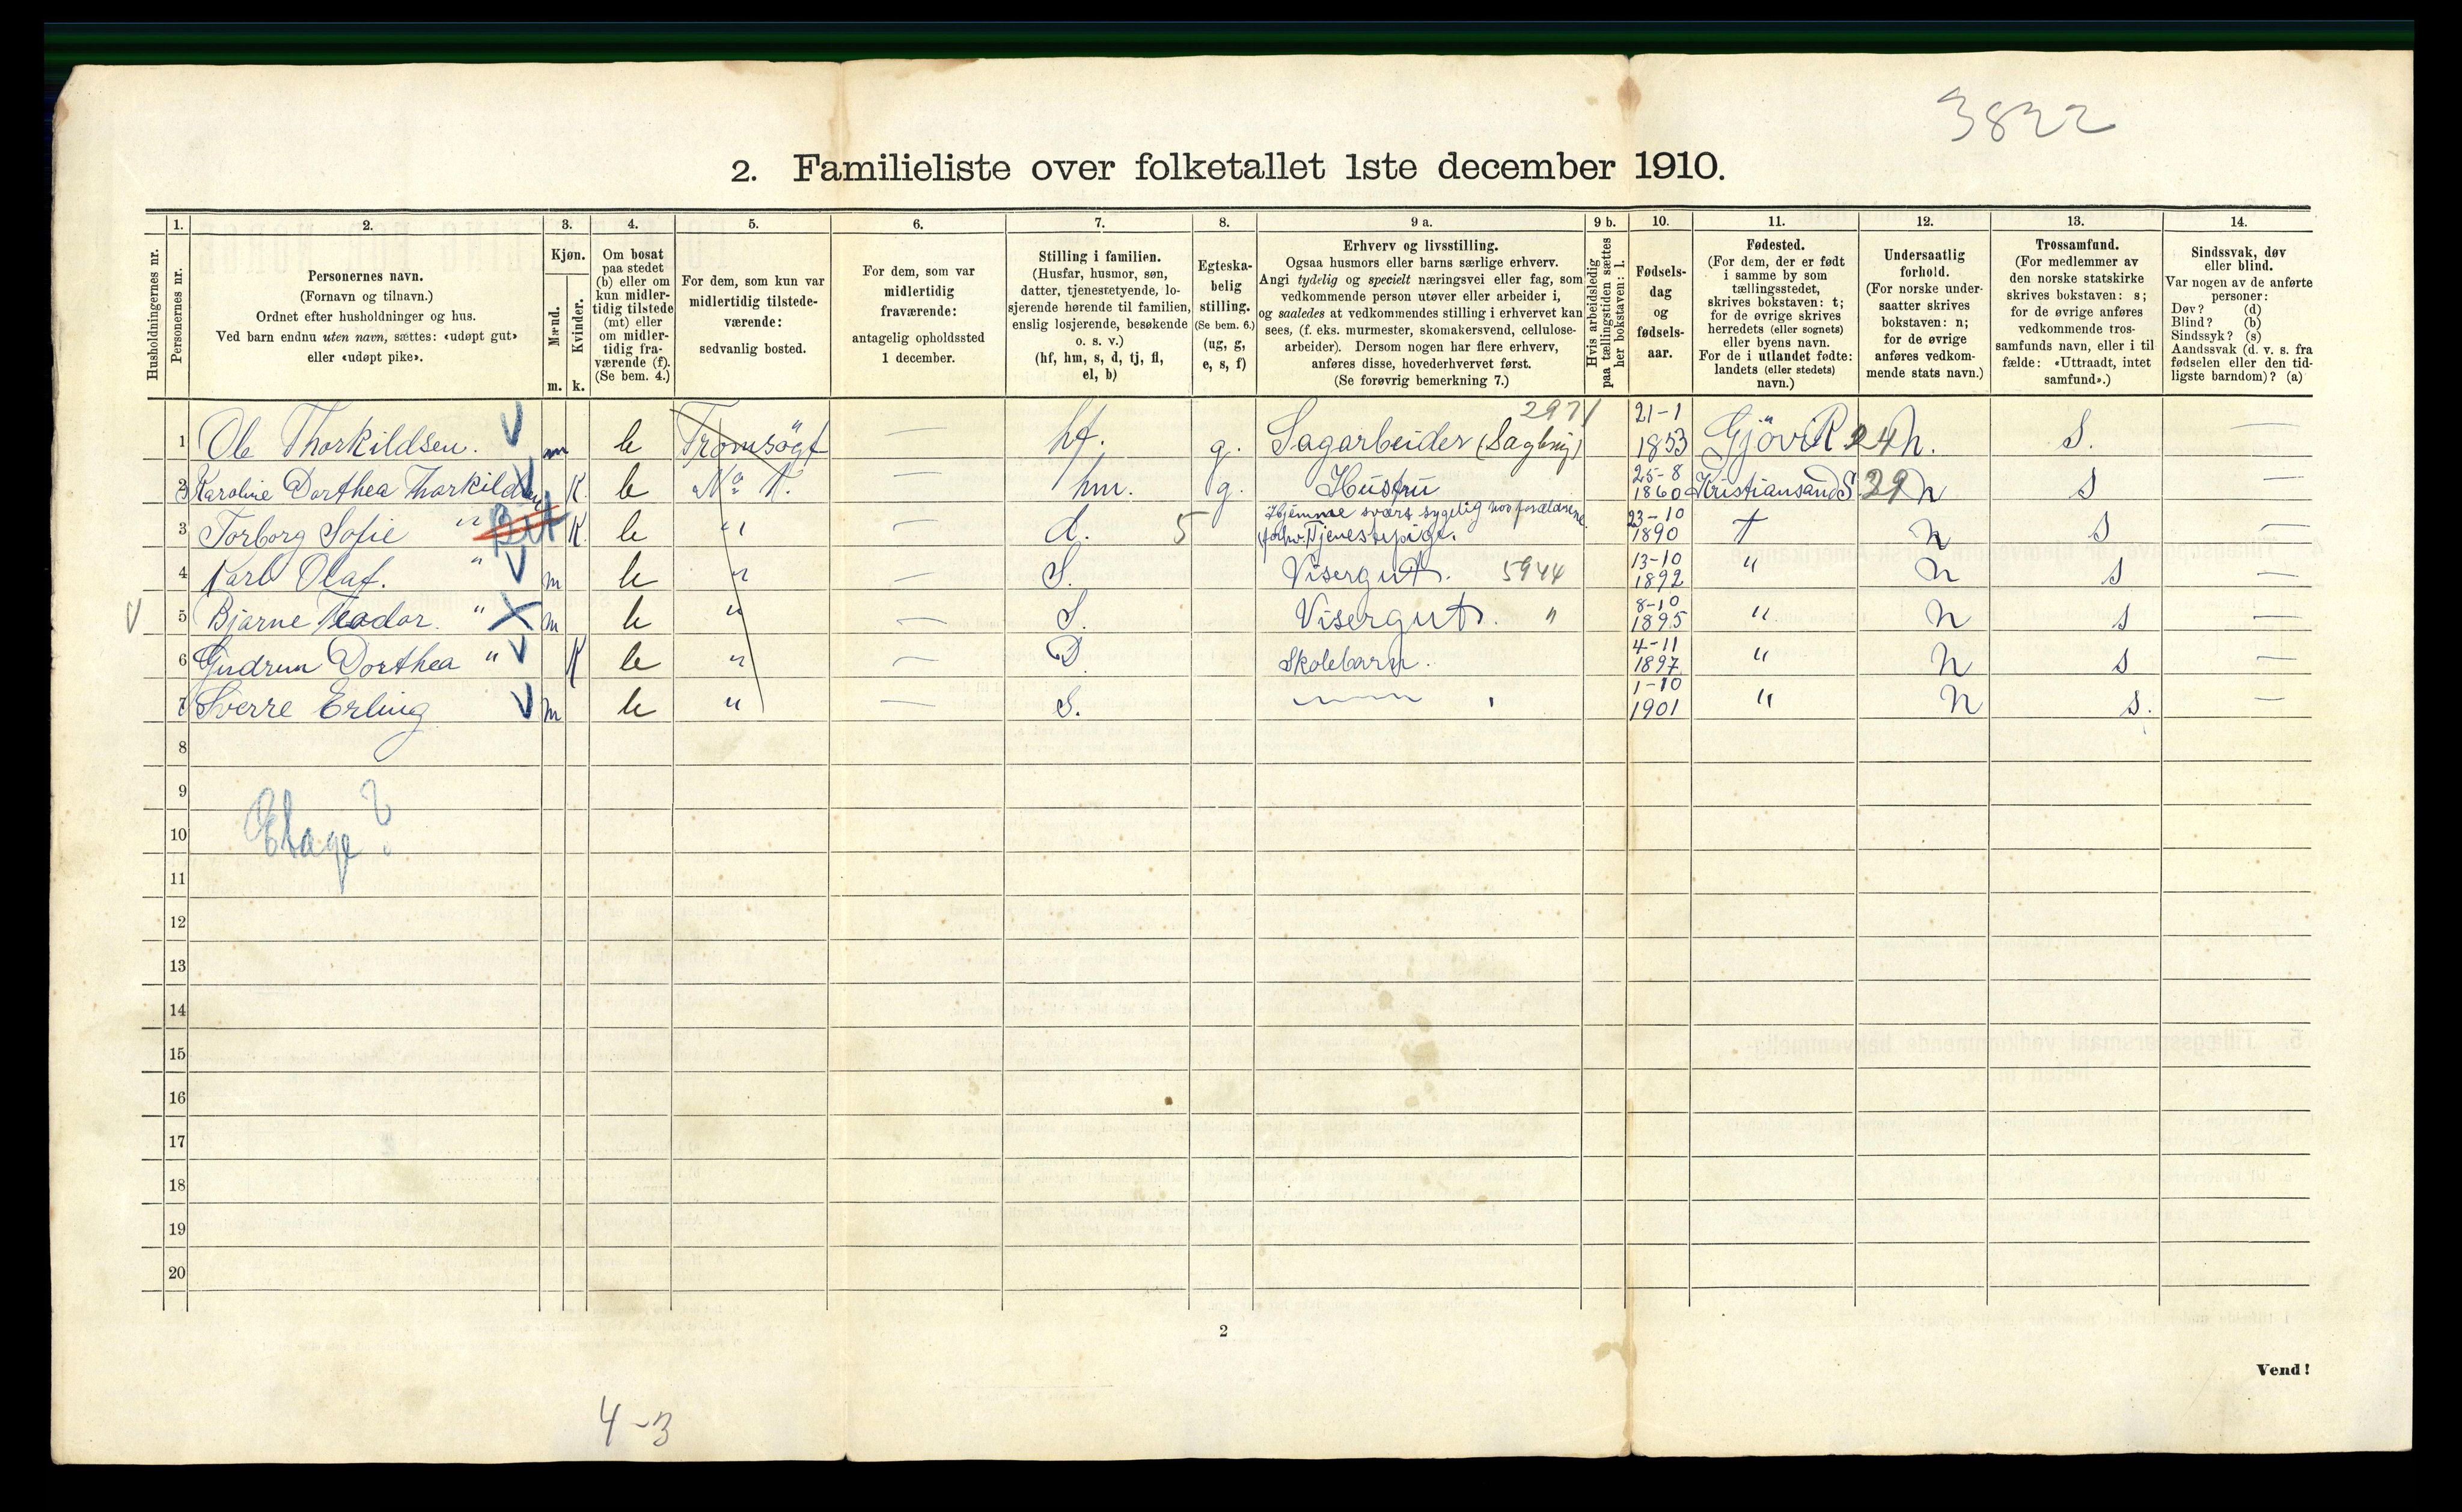 3822
2. Familieliste over folketallet 1ste december 1910.
Husholdningernes nr.
1.
Personernes nr.
2.
Personernes navn.
(Fornavn og tilnavn.)
Ordnet efter husholdninger og hus.
Ved barn endnu uten navn, sættes: «udøpt gut»
eller «udøpt pike».
3.
Kjøn.
Mænd.
Kvinder.
m. k.
4.
Om bosat
paa stedet
(b) eller om
kun midler-
tidig tilstede
(mt) eller
om midler-
tidig fra-
værende (f).
(Se bem. 4.)
5.
For dem, som kun var
midlertidig tilstede-
værende:
sedvanlig bosted.
6.
For dem, som var
midlertidig
fraværende:
antagelig opholdssted
1 december.
7.
Stilling i familien.
(Husfar, husmor, søn,
datter, tjenestetyende, lo-
sjerende hørende til familien,
enslig losjerende, besøkende
o. s. v.)
(hf, hm, s, d, tj, fl,
el, b)
8.
Egteska-
belig
stilling.
(Se bem. 6.)
(ug, g,
e, s, f)
9 a.
Erhverv og livsstilling.
Ogsaa husmors eller barns særlige erhverv.
Angi tydelig og specielt næringsvei eller fag, som
vedkommende person utøver eller arbeider i,
og saaledes at vedkommendes stilling i erhvervet kan
sees, (f. eks. murmester, skomakersvend, cellulose-
arbeider). Dersom nogen har flere erhverv,
anføres disse, hovederhvervet først.
(Se forøvrig bemerkning 7.)
9 b.
Hvis arbeidsledig
paa tællingstiden sættes
her bokstaven: l.
10.
Fødsels-
dag
og
fødsels-
aar.
11.
Fødested.
(For dem, der er født
i samme by som
tællingsstedet,
skrives bokstaven: t;
for de øvrige skrives
herredets (eller sognets)
eller byens navn.
For de i utlandet fødte:
landets (eller stedets)
navn.)
12.
Undersaatlig
forhold.
(For norske under-
saatter skrives
bokstaven: n;
for de øvrige
anføres vedkom-
mende stats navn.)
13.
Trossamfund.
(For medlemmer av
den norske statskirke
skrives bokstaven: s;
for de øvrige anføres
vedkommende tros-
samfunds navn, eller i til
fælde: «Uttraadt, intet
samfund».)
14.
Sindssvak, døv
eller blind.
Var nogen av de anførte
personer:
Døv? (d)
Blind? (b)
Sindssyk? (s)
Aandssvak (d. v. s. fra
fødselen eller den tid-
ligste barndom)? (a)
1 Ole Thorkildsen. V m b Tromsögt — hf. g. Sagarbeider (Sagbrug) 2971 21-1 1853 Gjövik 24 n. S. —
2 Karoline Dorthea Thorkildsen K. b No 1. — hm. g. Hustru 25-8 1860 Kristiansand S 39 n S —
3 Torborg Sofie " K. b " — d. 5 Hjemme svært sygelig hos forældrene
forhv. Tjenestepige. 23-10 1890 t n S —
4 Karl Olaf. " V m b " — S. Visergut. 5944 13-10 1892 " n s —
V 5 Bjarne Teodor. " X m b " — S. Visergut. " 8-10 1895 " n s —
6 Gudrun Dorthea " V K b " — D Skolebarn. 4-11 1897 " n s —
7 Sverre Erling V m b " — S. 1-10 1901 " n s. —
8
9
10
Etage?
11
12
13
14
15
16
17
18
19
20
2
Vend!
4-3